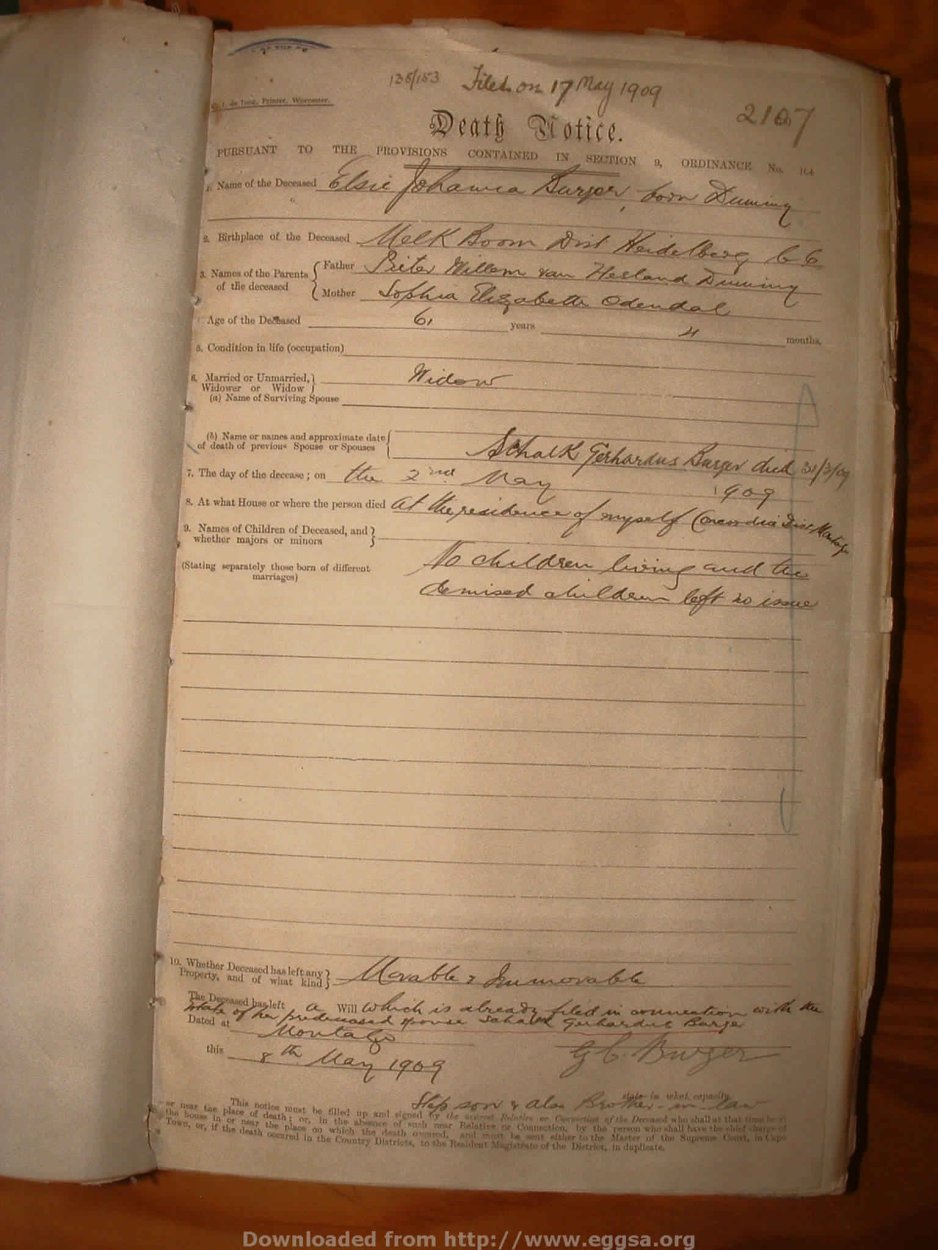 135/153 Filed on 17 May 1909
2107
de Jong, Printer, Worcester.
Death Notice.
PURSUANT TO THE PROVISIONS CONTAINED IN SECTION 9, ORDINANCE No. 104
1. Name of the Deceased Elsie Johanna Burger, born Dunning
2. Birthplace of the Deceased Melk Boom Dist Heidelberg C C
3. Names of the Parents of the deceased { Father Pieter Willem van Heeland Dunning
Mother Sophia Elizabeth Odendal
Age of the Deceased 61 years 4 months.
5. Condition in life (occupation)
6. Married or Unmarried, Widower or Widow } Widow
(a) Name of Surviving Spouse
(b) Name or names and approximate date of death of previous Spouse or Spouses { Schalk Gerhardus Burger died 31/3/09
7. The day of the decease; on the 2nd May 1909
8. At what House or where the person died At the residence of myself Concordia Dist Montagu
9. Names of Children of Deceased, and whether majors or minors }
(Stating separately those born of different marriages)
No children living and the
demised children left no issue
10. Whether Deceased has left any Property, and of what kind } Movable & Immovable
The Deceased has left a Will which is already filed in connection with the
state of her predeceased spouse Schalk Gerhardus Burger
Dated at Montagu
this 8th May 1909
G C Burger
state in what capacity
Step son & also Brother-in-law
This notice must be filled up and signed by the nearest Relative or Connection of the Deceased who shall at that time be at
or near the place of death; or, in the absence of such near Relative or Connection, by the person who shall have the chief charge of
the house in or near the place on which the death occurred, and must be sent either to the Master of the Supreme Court, in Cape
Town, or, if the death occured in the Country Districts, to the Resident Magistrate of the District, in duplicate.
Downloaded from http://www.eggsa.org